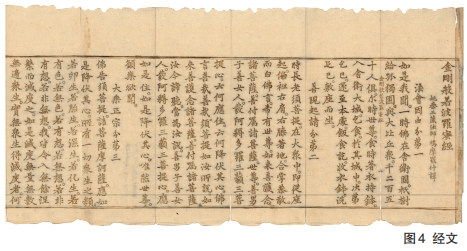 金剛般若波羅蜜經
姚秦三藏法師鳩摩羅什譯
法會因由分第一
如是我聞一時佛在舍衛國祇樹
給孤獨園與大比丘衆千二百五
十人俱爾時世尊食時著衣持鉢
入舍衛大城乞食於其城中次第
乞已還至本處飯食訖收衣鉢洗
足已敷座而坐
善現起請分第二
時長老須菩提在大衆中即從座
起偏袒右肩右膝著地合掌恭敬
而白佛言希有世尊如來善護念
諸菩薩善付囑諸菩薩世尊善男
子善女人發阿耨多羅三藐三菩
提心云何應住云何降伏其心佛
言善哉善哉須菩提如汝所說如
來善護念諸菩薩善付囑諸菩薩
汝今諦聽當為汝說善男子善女
人發阿耨多羅三藐三菩提心應
如是住如是降伏其心唯然世尊
願樂欲聞
大乘正宗分第三
佛告須菩提諸菩薩摩訶薩應如
是降伏其心所有一切衆生之類
若卵生若胎生若濕生若化生若
有色若無色若有想若無想若非
有想非無想我皆令入無餘涅
槃而滅度之如是滅度無量無數
無邊衆生實無衆生得滅度者何
图4 经文